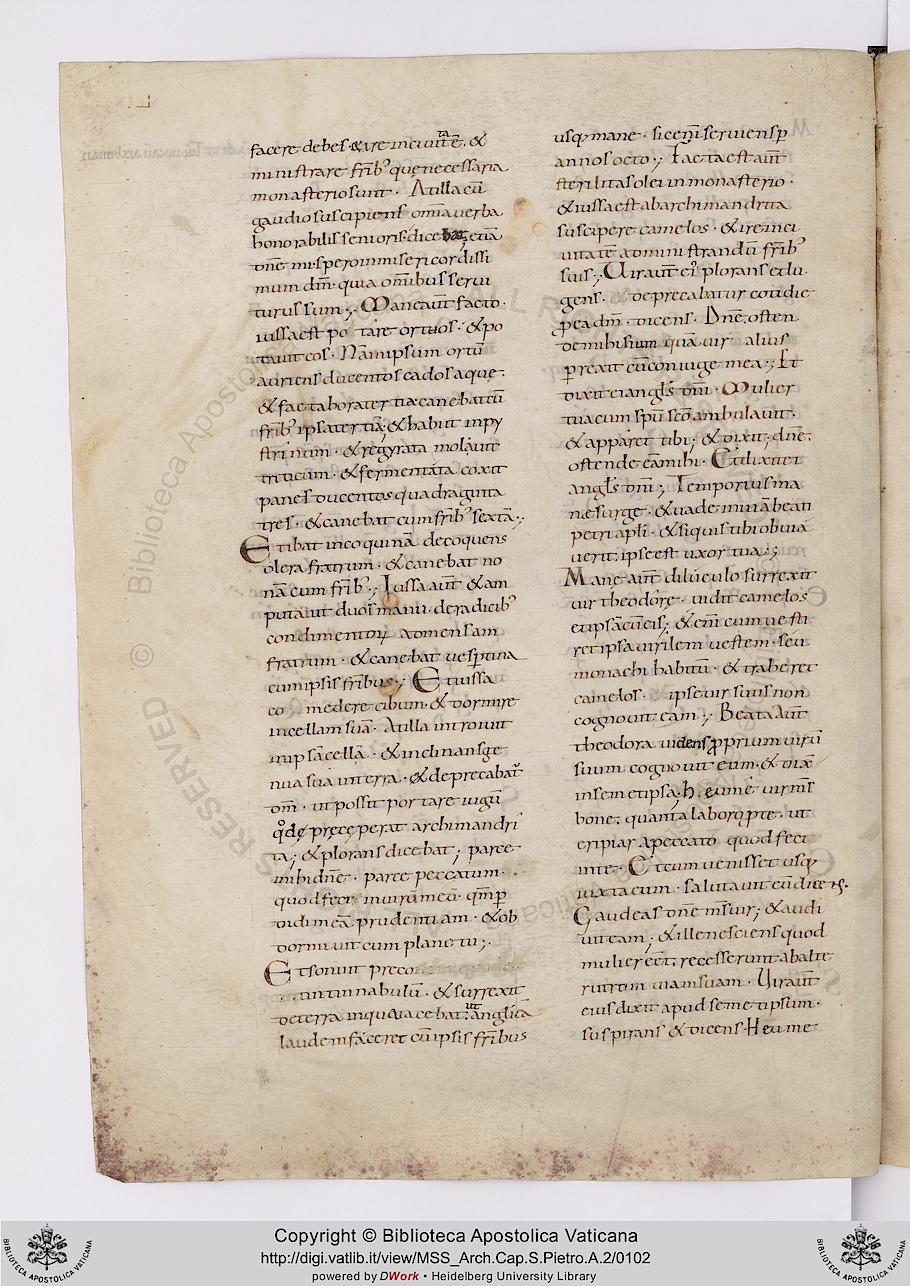 facere debes & ire in ciuitatē · &
ministrare frīb' que necessaria
monasterio sunt · At illa cū
gaudio suscipiens omīa uerba
honorabilis senioris · dicebat; etiā
dn̄e mi · spero in misericordissi
mum dm̄ · quia om̄ibus serui
turus sum ;· Mane aut̄ facto ·
iussa est po tare ortuos · & po
tauit eos · Nam ipsum ortū
auriens ducentos cados aque ·
& facta hora tertia canebat cū
frīb' ipsa tertiā; & habiit in py
strinum · & regyrata mola uūt
triticum · & fermentata coxit
panes ducentos quadraginta
tres · & canebat cum frīb' sextā ;·
Et ibat in coquinā decoquens
olera fratrum · & canebat no
nā cum frīb' ;· Iussa aut̄ & am
putauit duos manu · de radicib'
condimentorꝝ ad mensam
fratrum · & canebat uesptina
cum ipsis frībus ;· Et iussa
co medere cibum · & dormire
in cellam suā · At illa introiuit
in ipsā cellā · & inclinans ge
nua sua in terra · & deprecabat᷑
dm̄ · ut possit portare iugū
qđ preceperat archimandri
ta ; & plorans dicebat ; parce
mihi dn̄e · parce peccatum ·
quod feci in uirū meū · qm̄ p
didi meā prudentiam · & ob
dormiuit cum planctu ;·
Et sonuit preco
tintinnabulū · & surrexit
de terra in qua iacebat · ut anglicā
laudem faceret cū ipsis frībus
usq; mane · sic enī seruiens p
annos octo ;· Facta est aut̄
sterilitas olei in monasterio ·
& iussa est ab archimandrita
suscipere camelos · & ire in ci
uitatē administrandū frīb'
suis ;· Uir aut̄ ei' plorans et lu
gens · & deprecabatur cotidie
p ea dm̄ · dicens · Dn̄e, osten
de mihi sium quā uir alius
pereat cū coniuge mea ;· Et
dixit ei angls dn̄i · Mulier
tua cum spū scō ambulauit ·
& apparet tibi ; & dixit ; dn̄e,
ostende eā mihi · Et dixit ei
angls dn̄i ; Temporius ma
ne surge · & uade in uiā beati
petri apli · & si quis tibi obuiā
uerit, ipse est uxor tua ;·
Mane aut̄ diluculo surrexit
uir theodore · uidit camelos
et ipsā cū eis ; & erat cum uesti
ret ipsa uirilem uestem · seu
monachi habitū · & traheret
camelos · ipse uir suus non
cognouit eam ;· Beata aut̄
theodora uidens pprium uirū
suum cognouit eum · & dix̄
in semetipsa · h eu me uir m̄s
bone, quanta laboro p te · ut
eripiar a peccato quod feci
in te · Et cum uenisset usq;
iuxta eum · salutauit eū dicens ·
Gaudeas dn̄e m̄s uir ; & audi
uit eam ; & ille nesciens quod
mulier eēt, recesserunt ab alte
rutrum uiam suam · Uir aut̄
eius dixit apud semetipsum ·
suspirans & dicens · Heu me
Copyright © Biblioteca Apostolica Vaticana
http://digi.vatlib.it/view/MSS_Arch.Cap.S.Pietro.A.2/0102
powered by DWork • Heidelberg University Library